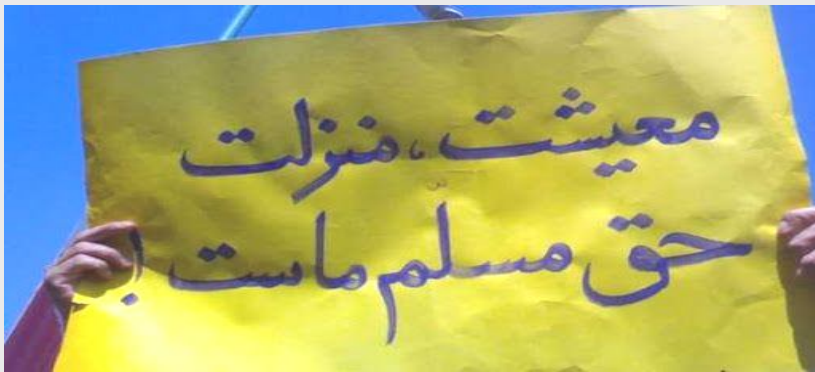 معیشت، منزلت
حق مسلّم ماست !